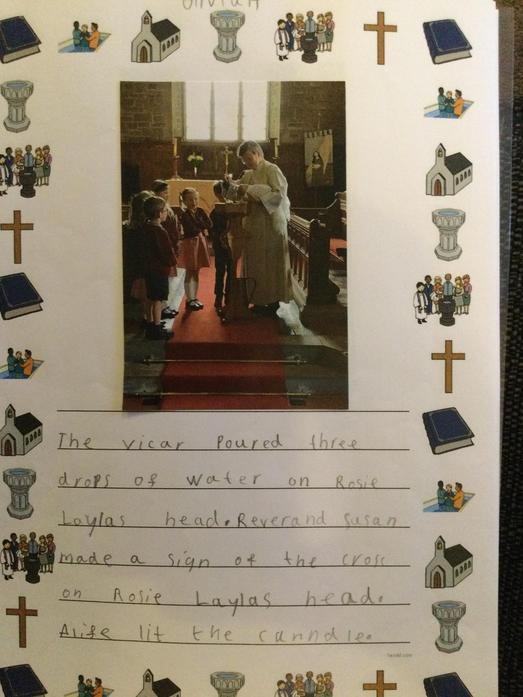 The vicar Poured three
drops of water on Rosie
Laylas head. Reverand Susan
made a sign of the cross
on Rosie Laylas head.
Alife lit the canndle.